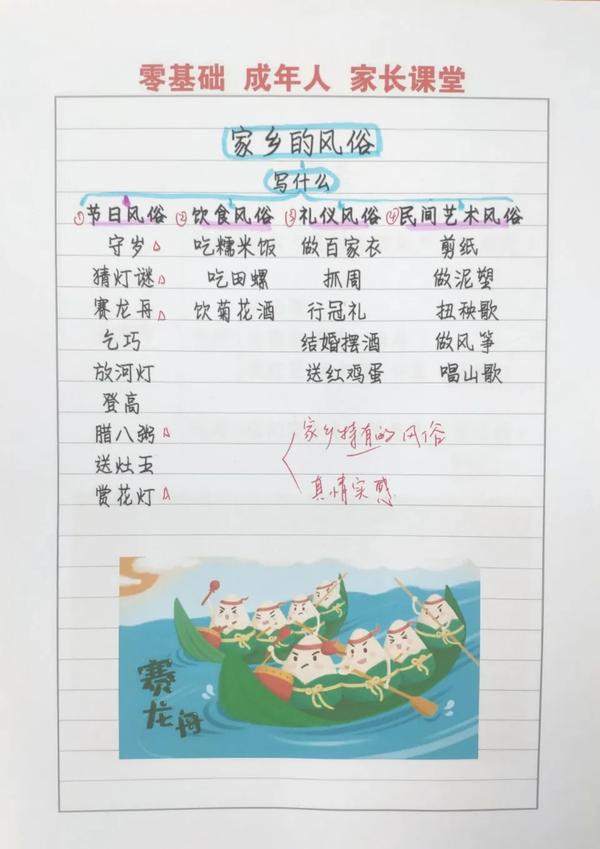 零基础 成年人 家长课堂
家乡的风俗
写什么
①节日风俗 ②饮食风俗 ③礼仪风俗 ④民间艺术风俗
守岁△ 吃糯米饭 做百家衣 剪纸
猜灯谜△ 吃田螺 抓周 做泥塑
赛龙舟△ 饮菊花酒 行冠礼 扭秧歌
乞巧 结婚摆酒 做风筝
放河灯 送红鸡蛋 唱山歌
登高
腊八粥△ 家乡特有的风俗
送灶王
赏花灯△ 真情实感
赛龙舟